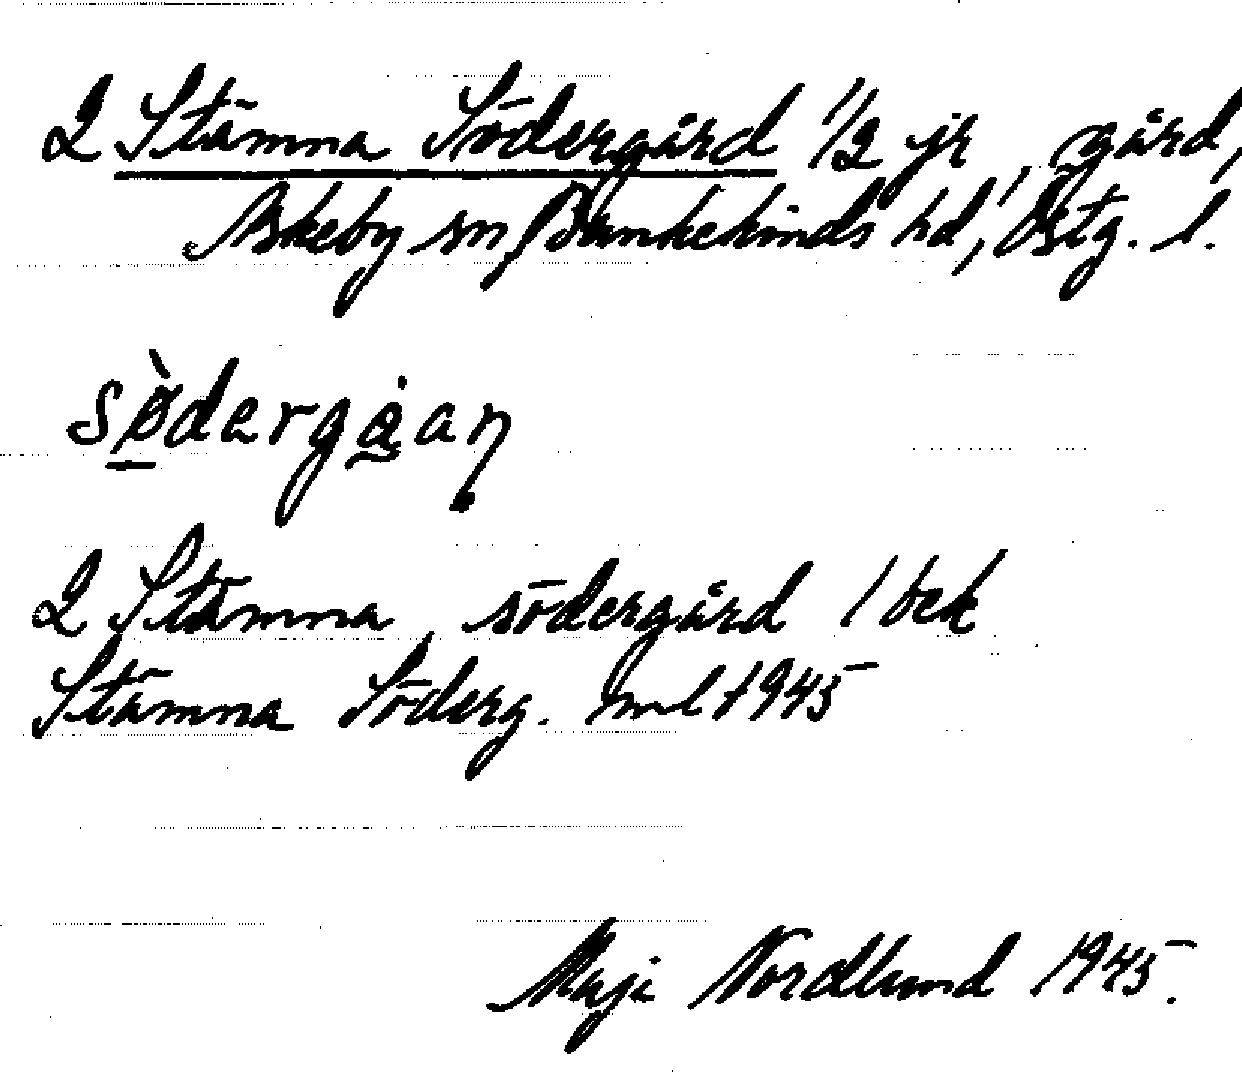 2 Stämna Södergård 1/2 jr, gård,
Askeby sn, Bankekinds hd, Östg. l.
södergåan
2 Stämna, södergård 1 bek
Stämna Söderg. ml 1945
Maji Nordlund 1945.